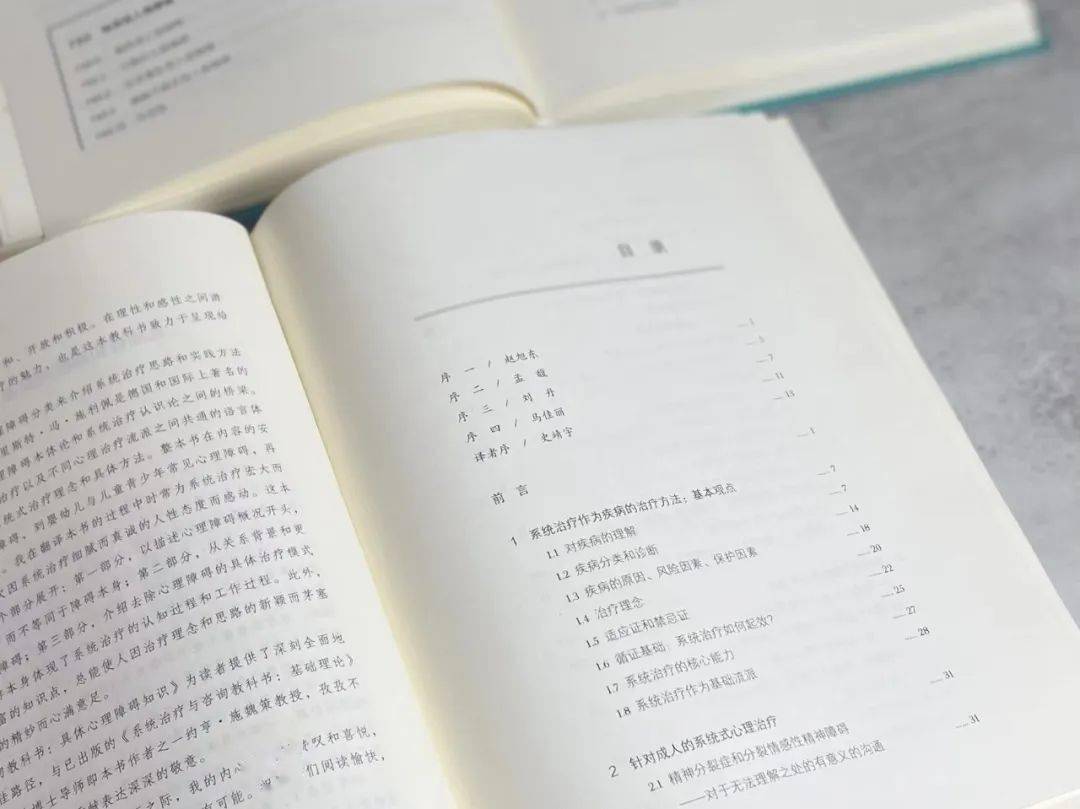 和、开放和积极。在理性和感性之间游
疗的魅力，也是这本教科书致力于呈现给
障碍分类来介绍系统治疗思路和实践方法
里斯特·冯·施利佩是德国和国际上著名的
障碍本体论和系统治疗认识论之间的桥梁。
治疗以及不同心理治疗流派之间共通的语言体
统式治疗理念和具体方法。整本书在内容的安
障碍，到婴幼儿与儿童青少年常见心理障碍，再
。我在翻译本书的过程中时常为系统治疗宏大而
因系统治疗细腻而真诚的人性态度而感动。这本
个部分展开：第一部分，以描述心理障碍概况开头，
而不等同于障碍本身；第二部分，从关系背景和更
障碍；第三部分，介绍去除心理障碍的具体治疗模式
本身体现了系统治疗的认知过程和工作过程。此外，
富的知识点，总能使人因治疗理念和思路的新颖而茅塞
的精妙而心满意足。
教科书：具体心理障碍知识》为读者提供了深刻全面地
佳路径，与已出版的《系统治疗与咨询教科书：基础理论》
博士导师即本书作者之一约亨·施魏策教授，孜孜不
表达深深的敬意。
之际，我的内心 叹和喜悦，
有可能。 们阅读愉快，
目录
序一 / 赵旭东 1
序二 / 孟馥 5
序三 / 刘丹 7
序四 / 马佳丽 11
译者序 / 史靖宇 13
前言 1
1 系统治疗作为疾病的治疗方法：基本观点 7
1.1 对疾病的理解 7
1.2 疾病分类和诊断 14
1.3 疾病的原因、风险因素、保护因素 18
1.4 治疗理念 20
1.5 适应证和禁忌证 22
1.6 循证基础：系统治疗如何起效? 25
1.7 系统治疗的核心能力 27
1.8 系统治疗作为基础流派 28
2 针对成人的系统式心理治疗 31
2.1 精神分裂症和分裂情感性精神障碍 31
——对于无法理解之处的有意义的沟通